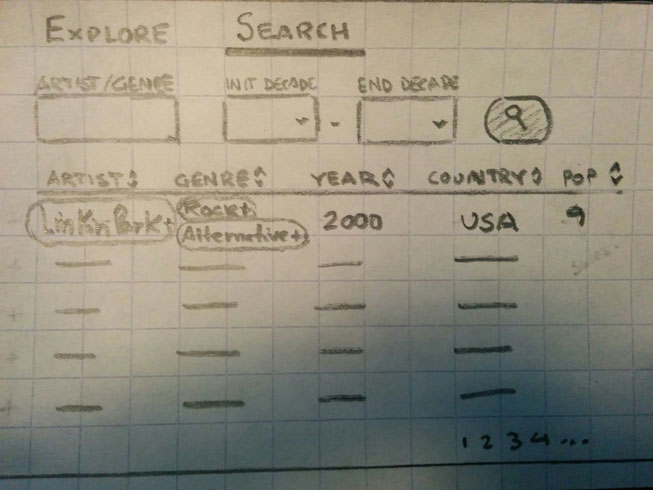 EXPLORE SEARCH
ARTIST/GENRE INIT DECADE END DECADE
-
ARTIST GENRE YEAR COUNTRY POP
LinKnPark+ Rock+ 2000 USA 9
Alternative+
1 2 3 4 ...